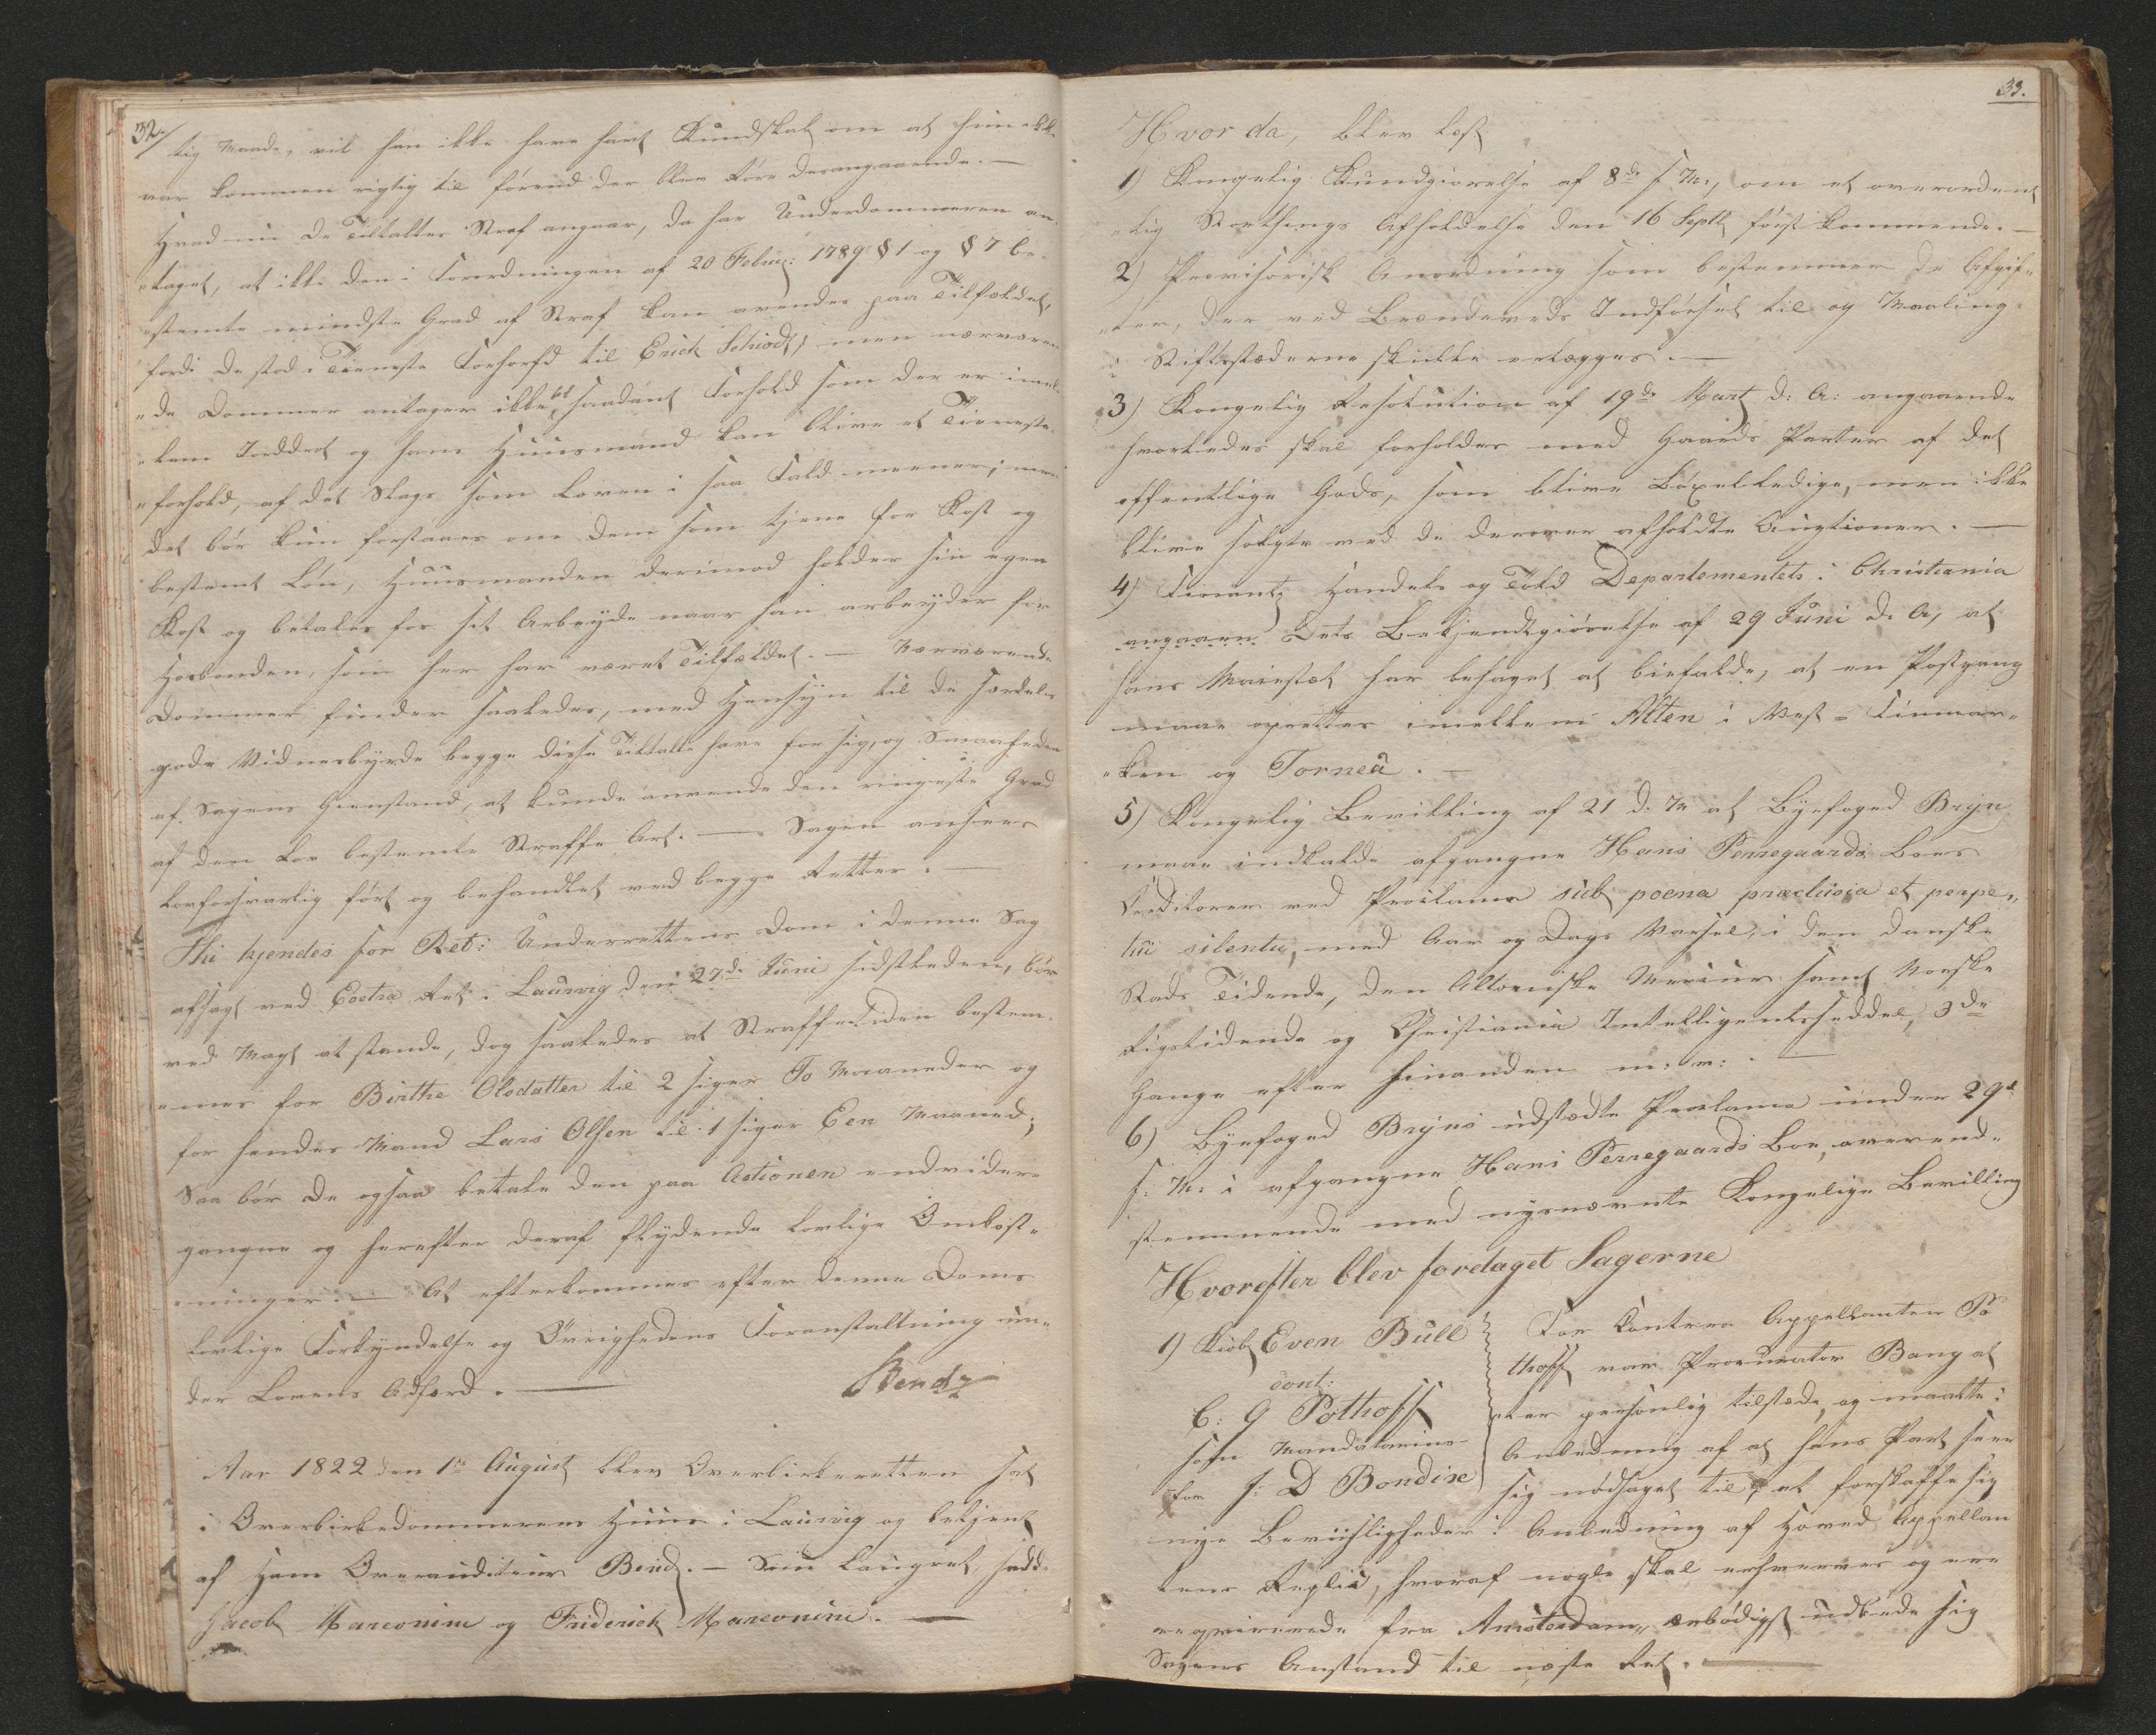 32/
lig Maade, vil han ikke have havt Kundskab om at hun ikke
var kommen rigtig til førend der blev Røre derangaaende. —
Hvad nu de Tiltaltes Straf angaaer, da har Underdommeren an-
„taget, at ikke den i Forordningen af 20 Februar: 1789 § 1 og § 7 be-
„stemte mindste Grad af Straf kan anvendes paa Tilfældet,
fordi de stod i Tieneste Forhold til Erich Schiodt; men nærværen-
„de Dommer antager ikke, at saadant Forhold som der er imel-
„lem Jorddrot og hans Huusmand kan blive et Tieneste-
„forhold, af det Slags som Loven i saa Fald meener; men
det bør kun forstaaes om dem som tjene for Kost og
bestemt Løn, Huusmanden derimod holder sin egen
Kost og betales for sit Arbeyde naar han arbeyder for
Hosbonden, som her har været Tilfældet. — Nærværende
Dommer finder saaledes, med Hensyn til de særdeles
gode Vidnesbyrde begge disse Tiltalte have for sig, og Smaaheden
af Sagens Gienstand, at kunde anvende den ringeste Grad
af den Lov bestemte Straffe Art. — Sagen ansees
lovforsvarlig ført og behandlet ved begge Retter. —
Thi kjendes for Ret: Underrettens Dom i denne Sag
afsagt ved Extra Ret i Laurvig den 27de Juni sidstleden, bør
ved Magt at stande, dog saaledes at Straffetiden bestem-
„mes for Birthe Olsdatter til 2 siger To Maaneder og
for hendes Mand Lars Olsen til 1 siger Een Maaned;
Saa bør de ogsaa betale den paa Actionen endvidere
gangne og herefter deraf flydende lovlige Omkost-
„ninger. — At efterkommes efter denne Doms
lovlige Forkyndelse og Øvrighedens Foranstaltning un-
der Lovens Adfærd. —
Bendz
Aar 1822 den 1ste August blev Overbirkeretten sat
i Overbirkedommerens Huus i Laurvig og betjent
af Ham Overauditeur Bendz. — Som Laugret sadde
Jacob Marconini og Friderich Marconini. —
33.
Hvor da, blev læst
1) Kongelig Kundgiørelse af 8de f. M., om et overordent
„lig Storthings Afholdelse den 16 Septbr førstkommende. —
2) Provisorisk Anordning som bestemmer de Afgif-
„ter, der ved Brændeveds Indførsel til og Maaling
i Stiftsstæderne skulle erlægges. —
3) Kongelig Resolution af 19de Mart d: A: angaaende
hvorledes skal forholdes med Gaards Parter af det
offentlige Gods, som blive Bøxelledige, men ikke
blive solgte ved de derover afholdte Auctioner. —
4) Finants Handels og Told Departementets i Christiania
angaaen Dets Bekjendtgiørelse af 29 Juni d. A, at
Hans Maiestæt har behaget at biefalde, at en Postgang
maae oprettes imellem Alten i Vest-Finmar-
„ken og Torneå. —
5) Kongelig Bevilling af 21 d. M at Byefoged Bryn
maae indkalde afgangne Hans Perregaards Boes
Creditorer ved Proclama sub poena præclusia et perpe-
tui silentii, med Aar og Dags Varsel, i den danske
Stads Tidende, den Altonaiske Mercur samt Norske
Rigstidende og Christiania Intelligentssedler, 3de
Gange efter hinanden m: v: —
6) Byefoged Bryns udstædte Proclama under 29de
f: M: i afgangne Hans Perregaards Boe, overeens-
stemmende med nysnævnte Kongelige Bevilling
Hvorefter blev foretaget Sagerne
1) Kiøb Even Bull
cont:
C: G Pothoff
som Mandatarius
for J: D Bondise
For Contra Appellanten Po
thoff var Procurator Bang at
personlig tilstæde, og maatte i
Anledning af at hans Part seer
sig nødsaget til, at forskaffe sig
nye Beviisligheder i Anledning af Hoved Appellan
tens Replic, hvoraf nogle skal erhverves og ere
reqvirerede fra Amsterdam, ærbødigst udbede sig
Sagens Anstand til næste Ret. —